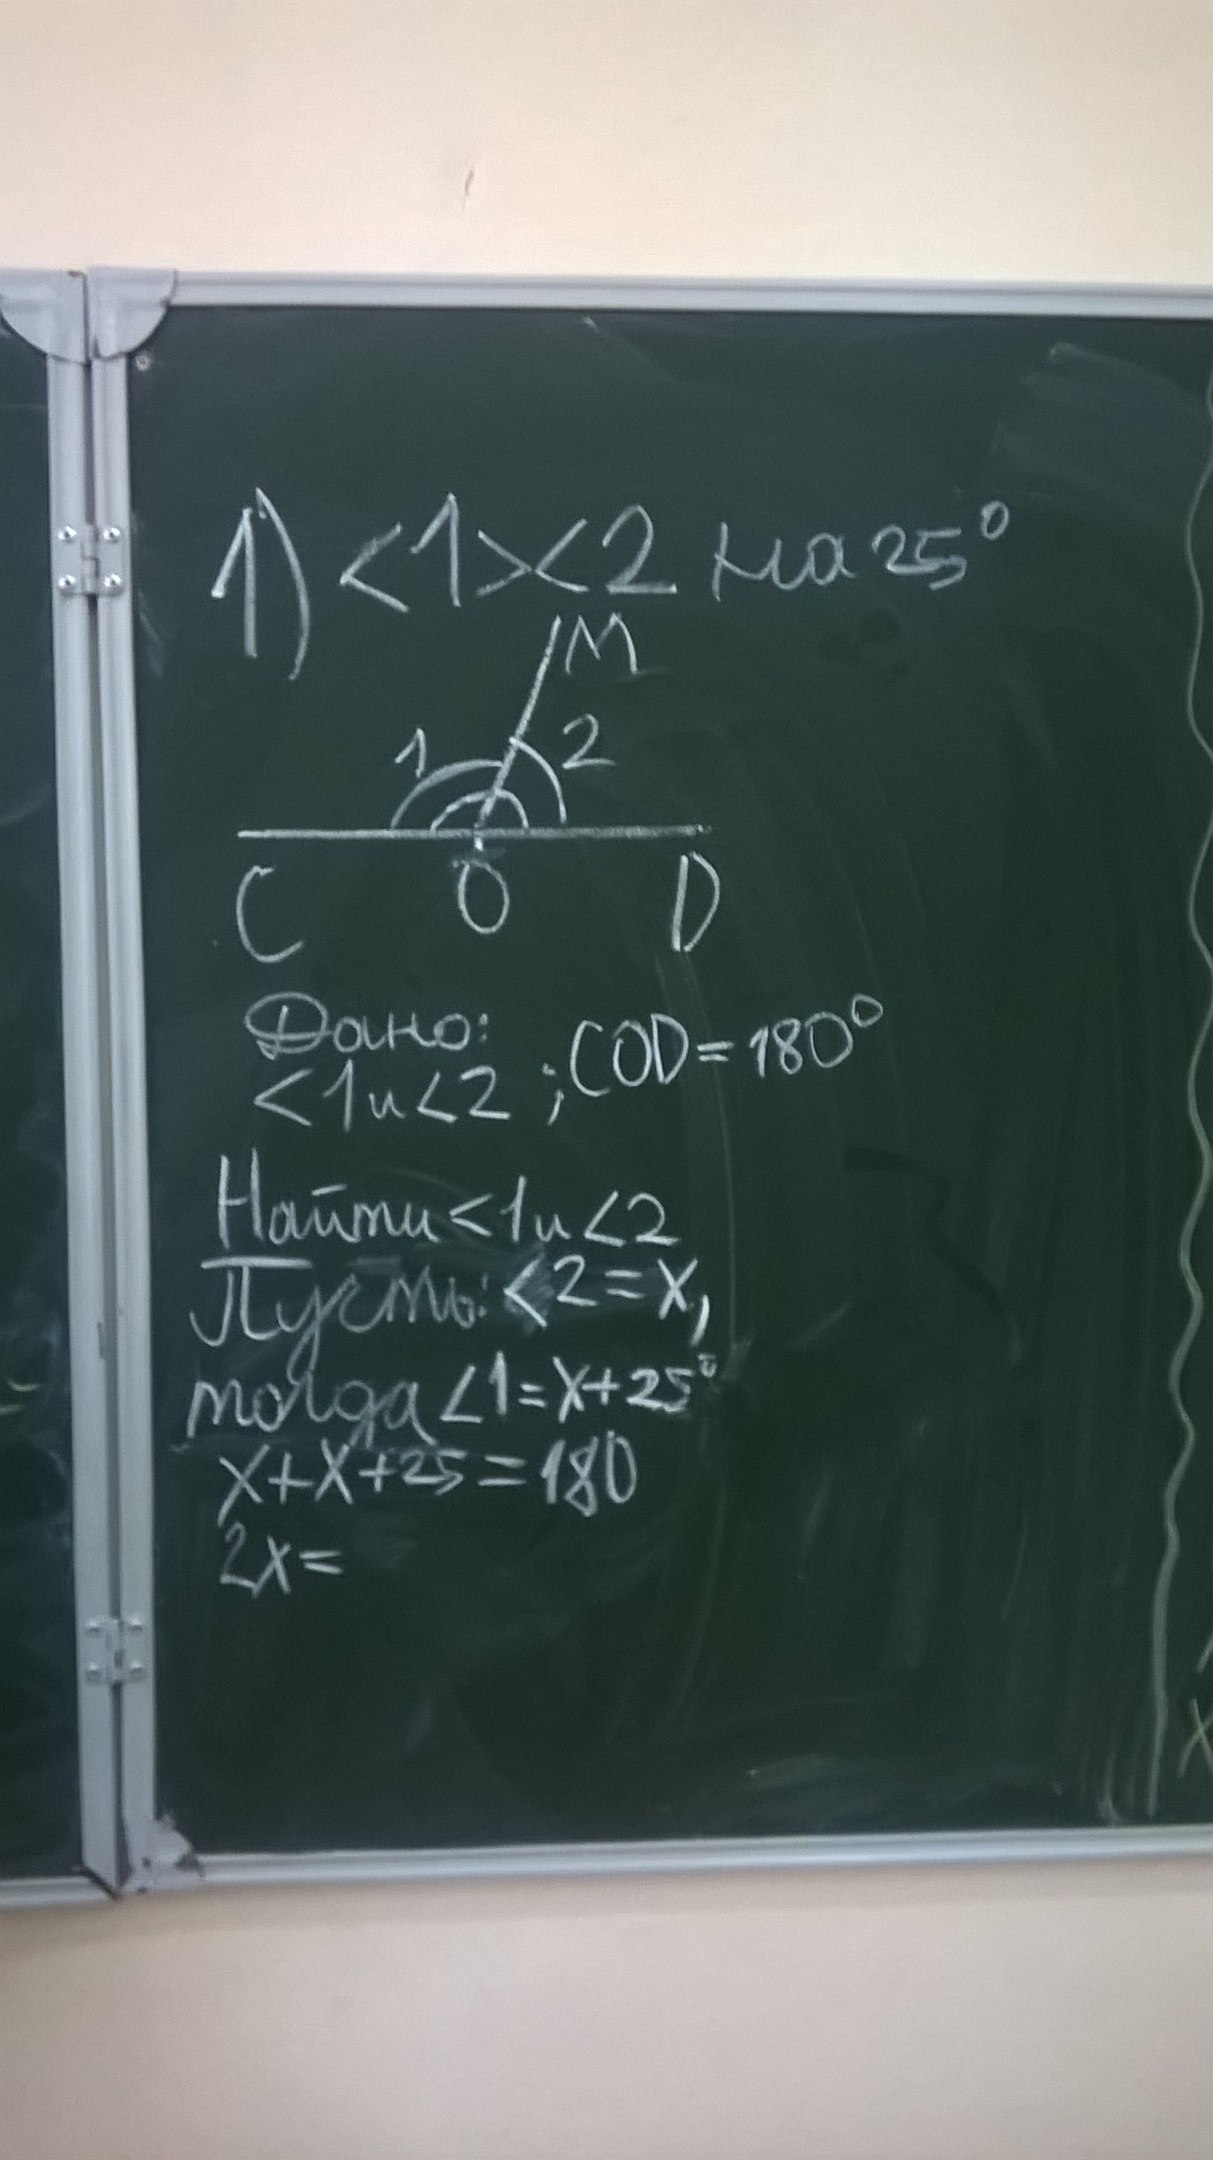 1) <1><2 на 25°
M
1 2
C O D
Дано:
<1 и <2 ; COD = 180°
Найти <1 и <2
Пусть: <2 = x,
тогда <1 = x+25°
x+x+25 = 180
2x =